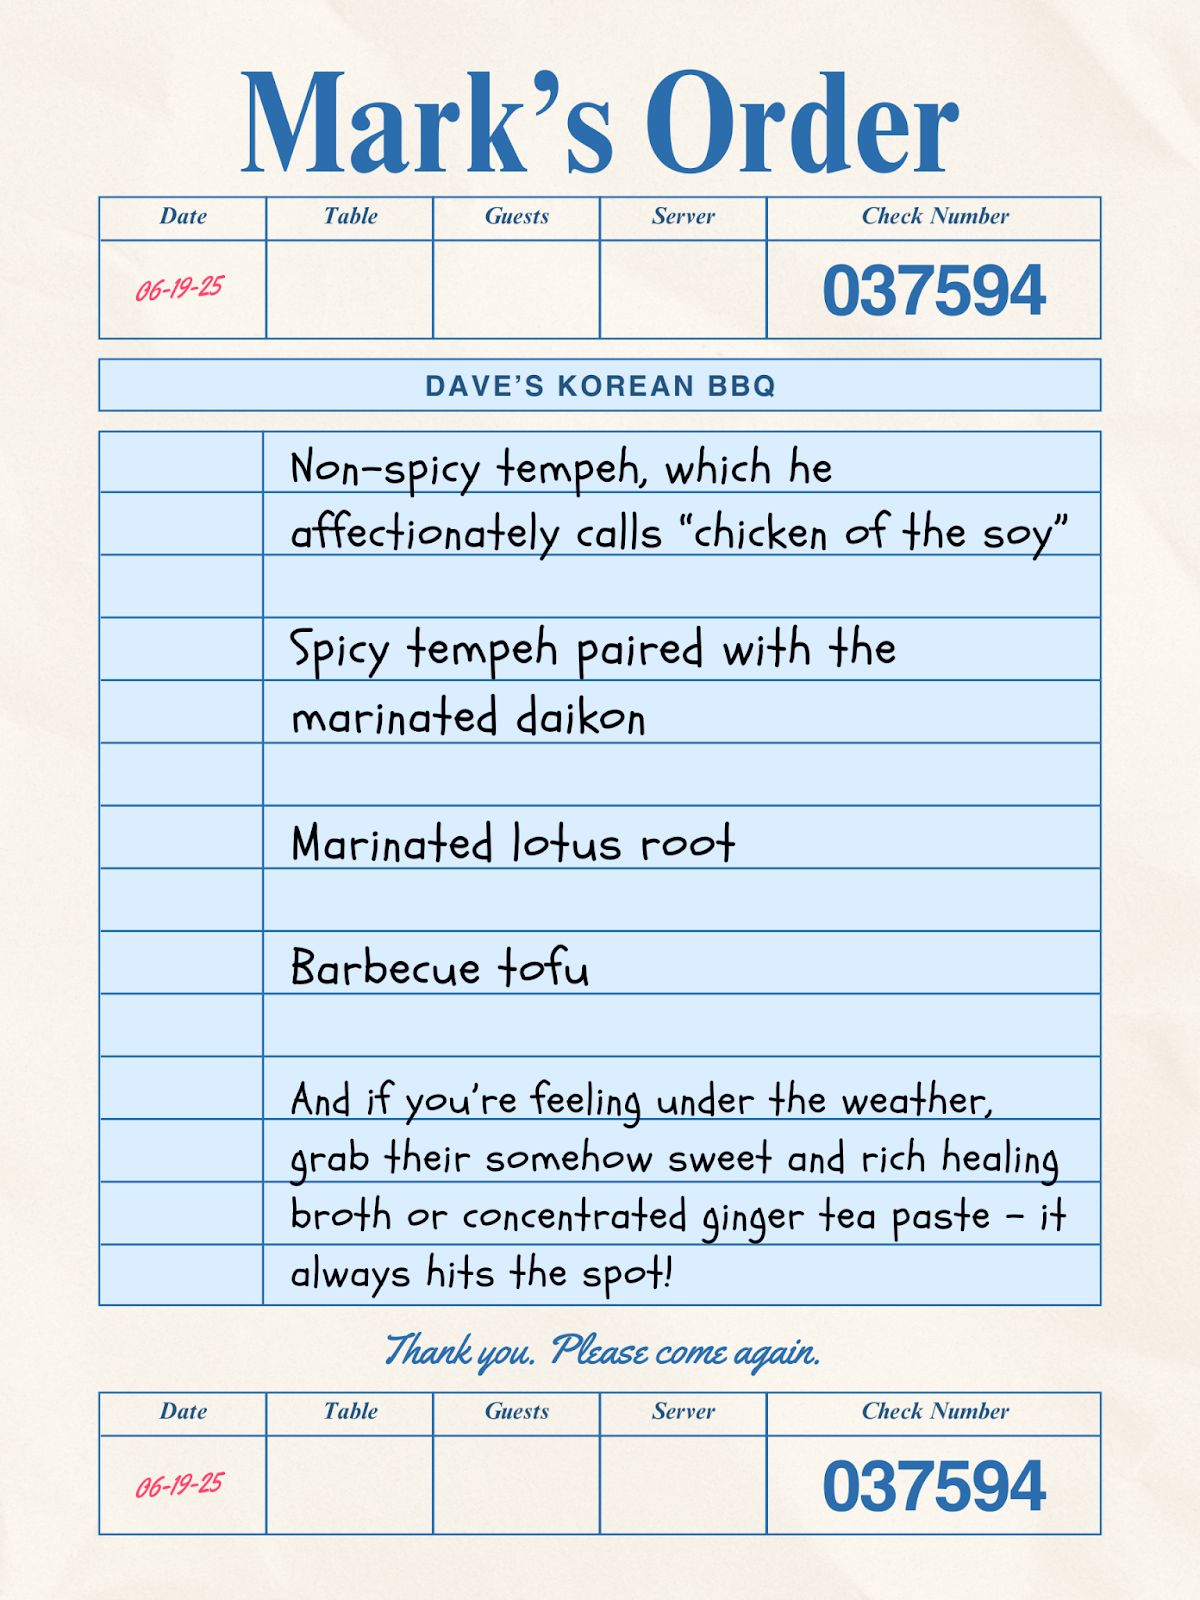 Mark’s Order
Date Table Guests Server Check Number
06-19-25 037594
DAVE’S KOREAN BBQ
Non-spicy tempeh, which he
affectionately calls “chicken of the soy”
Spicy tempeh paired with the
marinated daikon
Marinated lotus root
Barbecue tofu
And if you’re feeling under the weather,
grab their somehow sweet and rich healing
broth or concentrated ginger tea paste – it
always hits the spot!
Thank you. Please come again.
Date Table Guests Server Check Number
06-19-25 037594